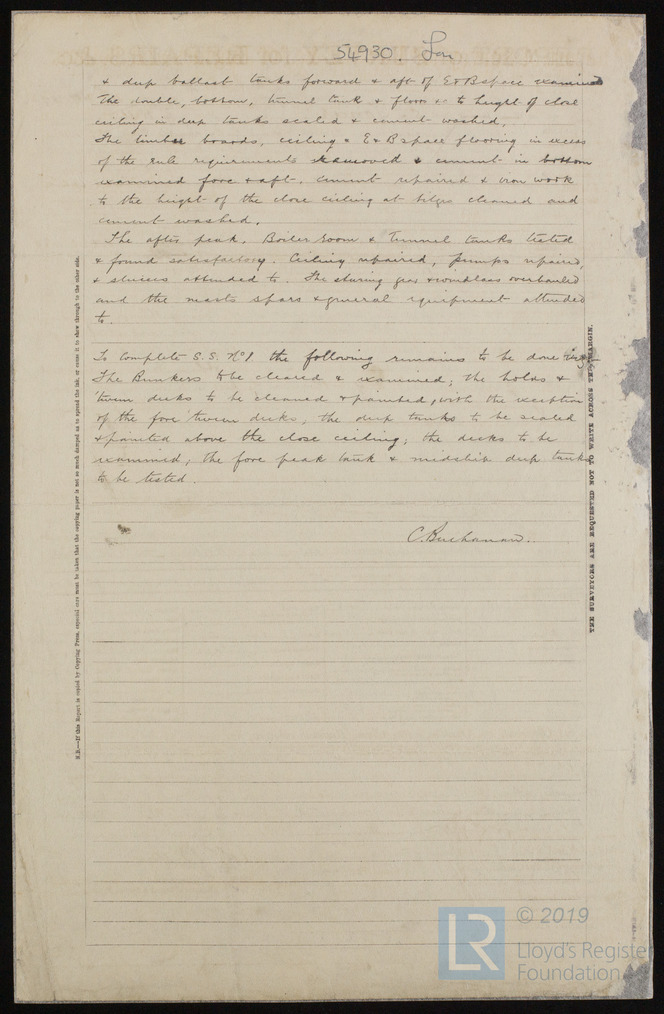 54930. Lon
& deep ballast tanks forward & aft of E&B space examined
The double, bottom, tunnel tank & floors &c to height of close
ceiling in deep tanks scaled & cement washed.
The limber boards, ceiling & E&B space flooring in excess
of the rule requirements removed & cement in bottom
examined fore & aft, cement repaired & iron work
to the height of the close ceiling at bilges cleaned and
cement washed.
The after peak, Boiler room & Tunnel tanks tested
& found satisfactory. Ceiling repaired, pumps repaired,
& sluices attended to. The steering gear & windlass overhauled
and the masts spars & general equipment attended
to.
To complete S.S. No 1 the following remains to be done
The Bunkers to be cleared & examined; the holds &
'tween decks to be cleaned & painted, with the exception
of the fore 'tween decks, the deep tanks to be scaled
& painted above the close ceiling; the decks to be
examined; the fore peak tank & midship deep tanks
to be tested.
C. Buchanan.
N.B.—If this Report is copied by Copying Press, especial care must be taken that the copying paper is not so much damped as to spread the ink, or cause it to show through to the other side.
THE SURVEYORS ARE REQUESTED NOT TO WRITE ACROSS THE MARGIN.
LR
© 2019
Lloyd's Register
Foundation